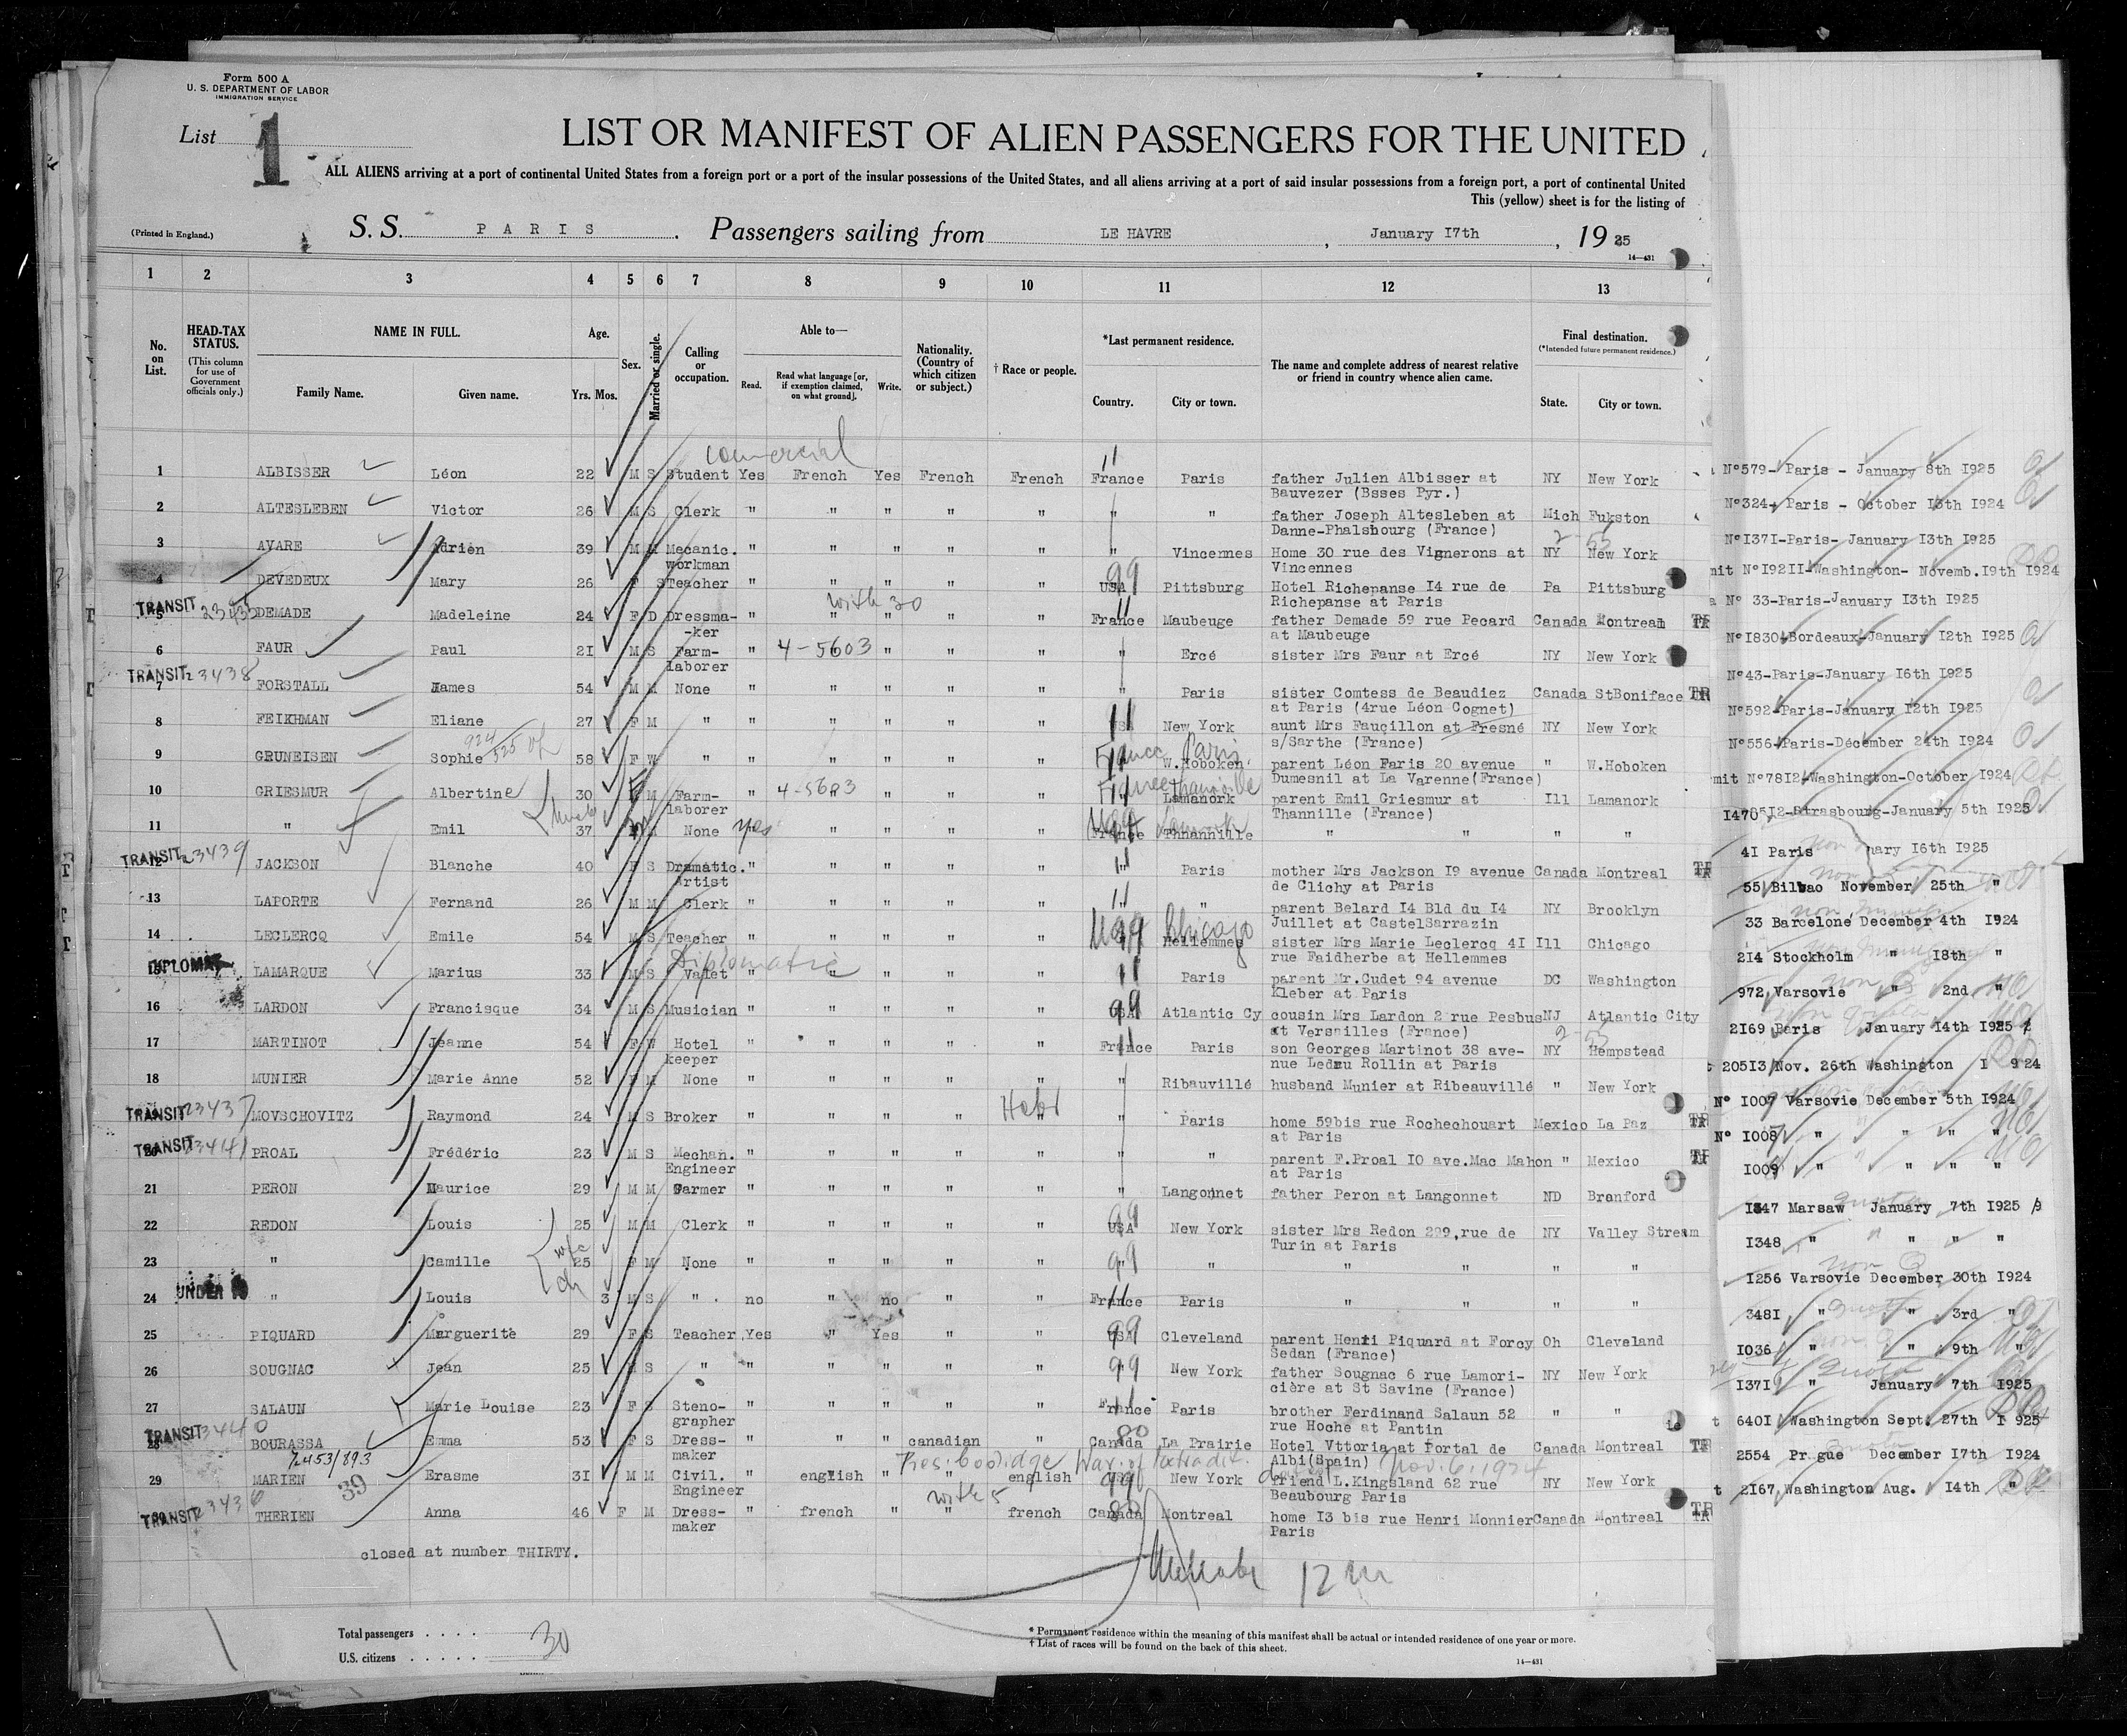 Form 500 A
U. S. DEPARTMENT OF LABOR
IMMIGRATION SERVICE
List 1
LIST OR MANIFEST OF ALIEN PASSENGERS FOR THE UNITED
ALL ALIENS arriving at a port of continental United States from a foreign port or a port of the insular possessions of the United States, and all aliens arriving at a port of said insular possessions from a foreign port, a port of continental United
This (yellow) sheet is for the listing of
(Printed in England.)
S. S. PARIS. Passengers sailing from LE HAVRE, January 17th, 1925
14—431
1 2 3 4 5 6 7 8 9 10 11 12 13
No. on List.
HEAD-TAX STATUS.
(This column for use of Government officials only.)
NAME IN FULL.
Family Name. Given name.
Age.
Yrs. Mos.
Sex.
Married or single.
Calling or occupation.
Able to—
Read. Read what language [or, if exemption claimed, on what ground]. Write.
Nationality. (Country of which citizen or subject.)
† Race or people.
*Last permanent residence.
Country. City or town.
The name and complete address of nearest relative or friend in country whence alien came.
Final destination.
(*Intended future permanent residence.)
State. City or town.
commercial
1 ALBISSER Léon 22 M S Student Yes French Yes French French France Paris father Julien Albisser at NY New York
Bauvezer (Bsses Pyr.)
2 ALTESLEBEN Victor 26 M S Clerk " " " " " " " father Joseph Altesleben at Mich Fukston
Danne-Phalsbourg (France)
2-55
3 AVARE Adrien 39 M M Mecanic. " " " " " " Vincennes Home 30 rue des Vignerons at NY New York
workman Vincennes
4 DEVEDEUX Mary 26 F S Teacher " " " " " USA Pittsburg Hotel Richepanse 14 rue de Pa Pittsburg
Richepanse at Paris
with 30
TRANSIT 5 DEMADE Madeleine 24 F D Dressma- " " " " " France Maubeuge father Demade 59 rue Pecard Canada Montreal
-ker at Maubeuge
6 FAUR Paul 21 M S Farm- " 4-5603 " " " " Ercé sister Mrs Faur at Ercé NY New York
laborer
TRANSIT 23438
7 FORSTALL James 54 M M None " " " " " " Paris sister Comtess de Beaudiez Canada StBoniface TR
at Paris (4rue Léon Cognet)
8 FEIKHMAN Eliane 27 F M " " " " " " New York aunt Mrs Faucillon at Fresné NY New York
s/Sarthe (France)
924/525
France Paris
9 GRUNEISEN Sophie 58 F W " " " " " " W.Hoboken parent Léon Faris 20 avenue " W.Hoboken
Dumesnil at La Varenne(France)
10 GRIESMUR Albertine 30 M Farm- " 4-5603 " " " Lamanork parent Emil Griesmur at Ill Lamanork
laborer Thannille (France)
11 " Emil 37 M None yes " " " " France Thnannille " " " "
TRANSIT 23439
12 JACKSON Blanche 40 F S Dramatic. " " " " " " Paris mother Mrs Jackson 19 avenue Canada Montreal
Artist de Clichy at Paris
13 LAPORTE Fernand 26 M M Clerk " " " " " " " parent Belard 14 Bld du 14 NY Brooklyn
Juillet at CastelSarrazin
Chicago
14 LECLERCQ Emile 54 M S Teacher " " " " " Hellemmes sister Mrs Marie Leclercq 41 Ill Chicago
rue Faidherbe at Hellemmes
Diplomatic
15 LAMARQUE Marius 33 M S Valet " " " " " Paris parent Mr.Cudet 94 avenue DC Washington
Kleber at Paris
16 LARDON Francisque 34 M S Musician " " " " " USA Atlantic Cy cousin Mrs Lardon 2 rue Pesbus NJ Atlantic City
at Versailles (France)
2-55
17 MARTINOT Jeanne 54 F W Hotel " " " " " France Paris son Georges Martinot 38 ave- NY Hempstead
keeper nue Ledru Rollin at Paris
18 MUNIER Marie Anne 52 F M None " " " " " " Ribauvillé husband Munier at Ribeauvillé " New York
TRANSIT 23437
19 MOVSCHOVITZ Raymond 24 M S Broker " " " " Hebr " Paris home 59bis rue Rochechouart Mexico La Paz
at Paris
TRANSIT 23441
20 PROAL Frédéric 23 M S Mechan. " " " " " " " parent F.Proal 10 ave.Mac Mahon " Mexico
Engineer at Paris
21 PERON Maurice 29 M M Farmer " " " " " " Langonnet father Peron at Langonnet ND Branford
22 REDON Louis 25 M M Clerk " " " " " USA New York sister Mrs Redon 299,rue de NY Valley Stream
Turin at Paris
wfe
23 " Camille 25 F M None " " " " " " " " " " "
ch
UNDER 16
24 " Louis 3 M S " no " no " " France Paris " " " "
25 PIQUARD Marguerite 29 F S Teacher Yes " Yes " " USA Cleveland parent Henri Piquard at Forcy Oh Cleveland
Sedan (France)
26 SOUGNAC Jean 25 M S " " " " " " " New York father Sougnac 6 rue Lamori- NY New York
cière at St Savine (France)
27 SALAUN Marie Louise 23 F S Steno- " " " " " France Paris brother Ferdinand Salaun 52 " "
grapher rue Hoche at Pantin
TRANSIT 23440
28 BOURASSA Emma 53 F S Dress- " " " canadian " Canada La Prairie Hotel Vttoria at Portal de Canada Montreal
maker Albi(Spain)
72453/893
Pres. Coolidge War. of Extradit. dated Nov. 6. 1924
29 MARIEN 39 Erasme 31 M M Civil. " english " " english New York friend L.Kingsland 62 rue NY New York
Engineer Beaubourg Paris
with 5
TRANSIT 23436
30 THERIEN Anna 46 F M Dress- " french " " french Canada Montreal home 13 bis rue Henri Monnier Canada Montreal
maker Paris
closed at number THIRTY.
12
Total passengers . . . . 30
U.S. citizens . . . . .
* Permanent residence within the meaning of this manifest shall be actual or intended residence of one year or more.
† List of races will be found on the back of this sheet.
14—431
N°579- Paris - January 8th 1925
N°324- Paris - October 13th 1924
N°1371-Paris- January 13th 1925
mit N°19211-Washington- Novemb.19th 1924
N° 33-Paris-January 13th 1925
N°1830-Bordeaux-January 12th 1925
N°43-Paris-January 16th 1925
N°592-Paris-January 12th 1925
N°556-Paris-Décember 24th 1924
mit N°7812-Washington-October 1924
Strasbourg-January 5th 1925
41 Paris uary 16th 1925
55 Bilbao November 25th "
33 Barcelone December 4th 1924
214 Stockholm " 18th "
972 Varsovie " 2nd "
2169 Paris January 14th 1925
20513 Nov. 26th Washington 1924
N° 1007 Varsovie December 5th 1924
N° 1008 " " " "
1009 " " " "
1347 Marsaw January 7th 1925
1348 " " " "
1256 Varsovie December 30th 1924
3481 " " 3rd "
1036 " " 9th "
1371 " January 7th 1925
t 6401 Washington Sept. 27th 1925
2554 Prague December 17th 1924
t 2167 Washington Aug. 14th "